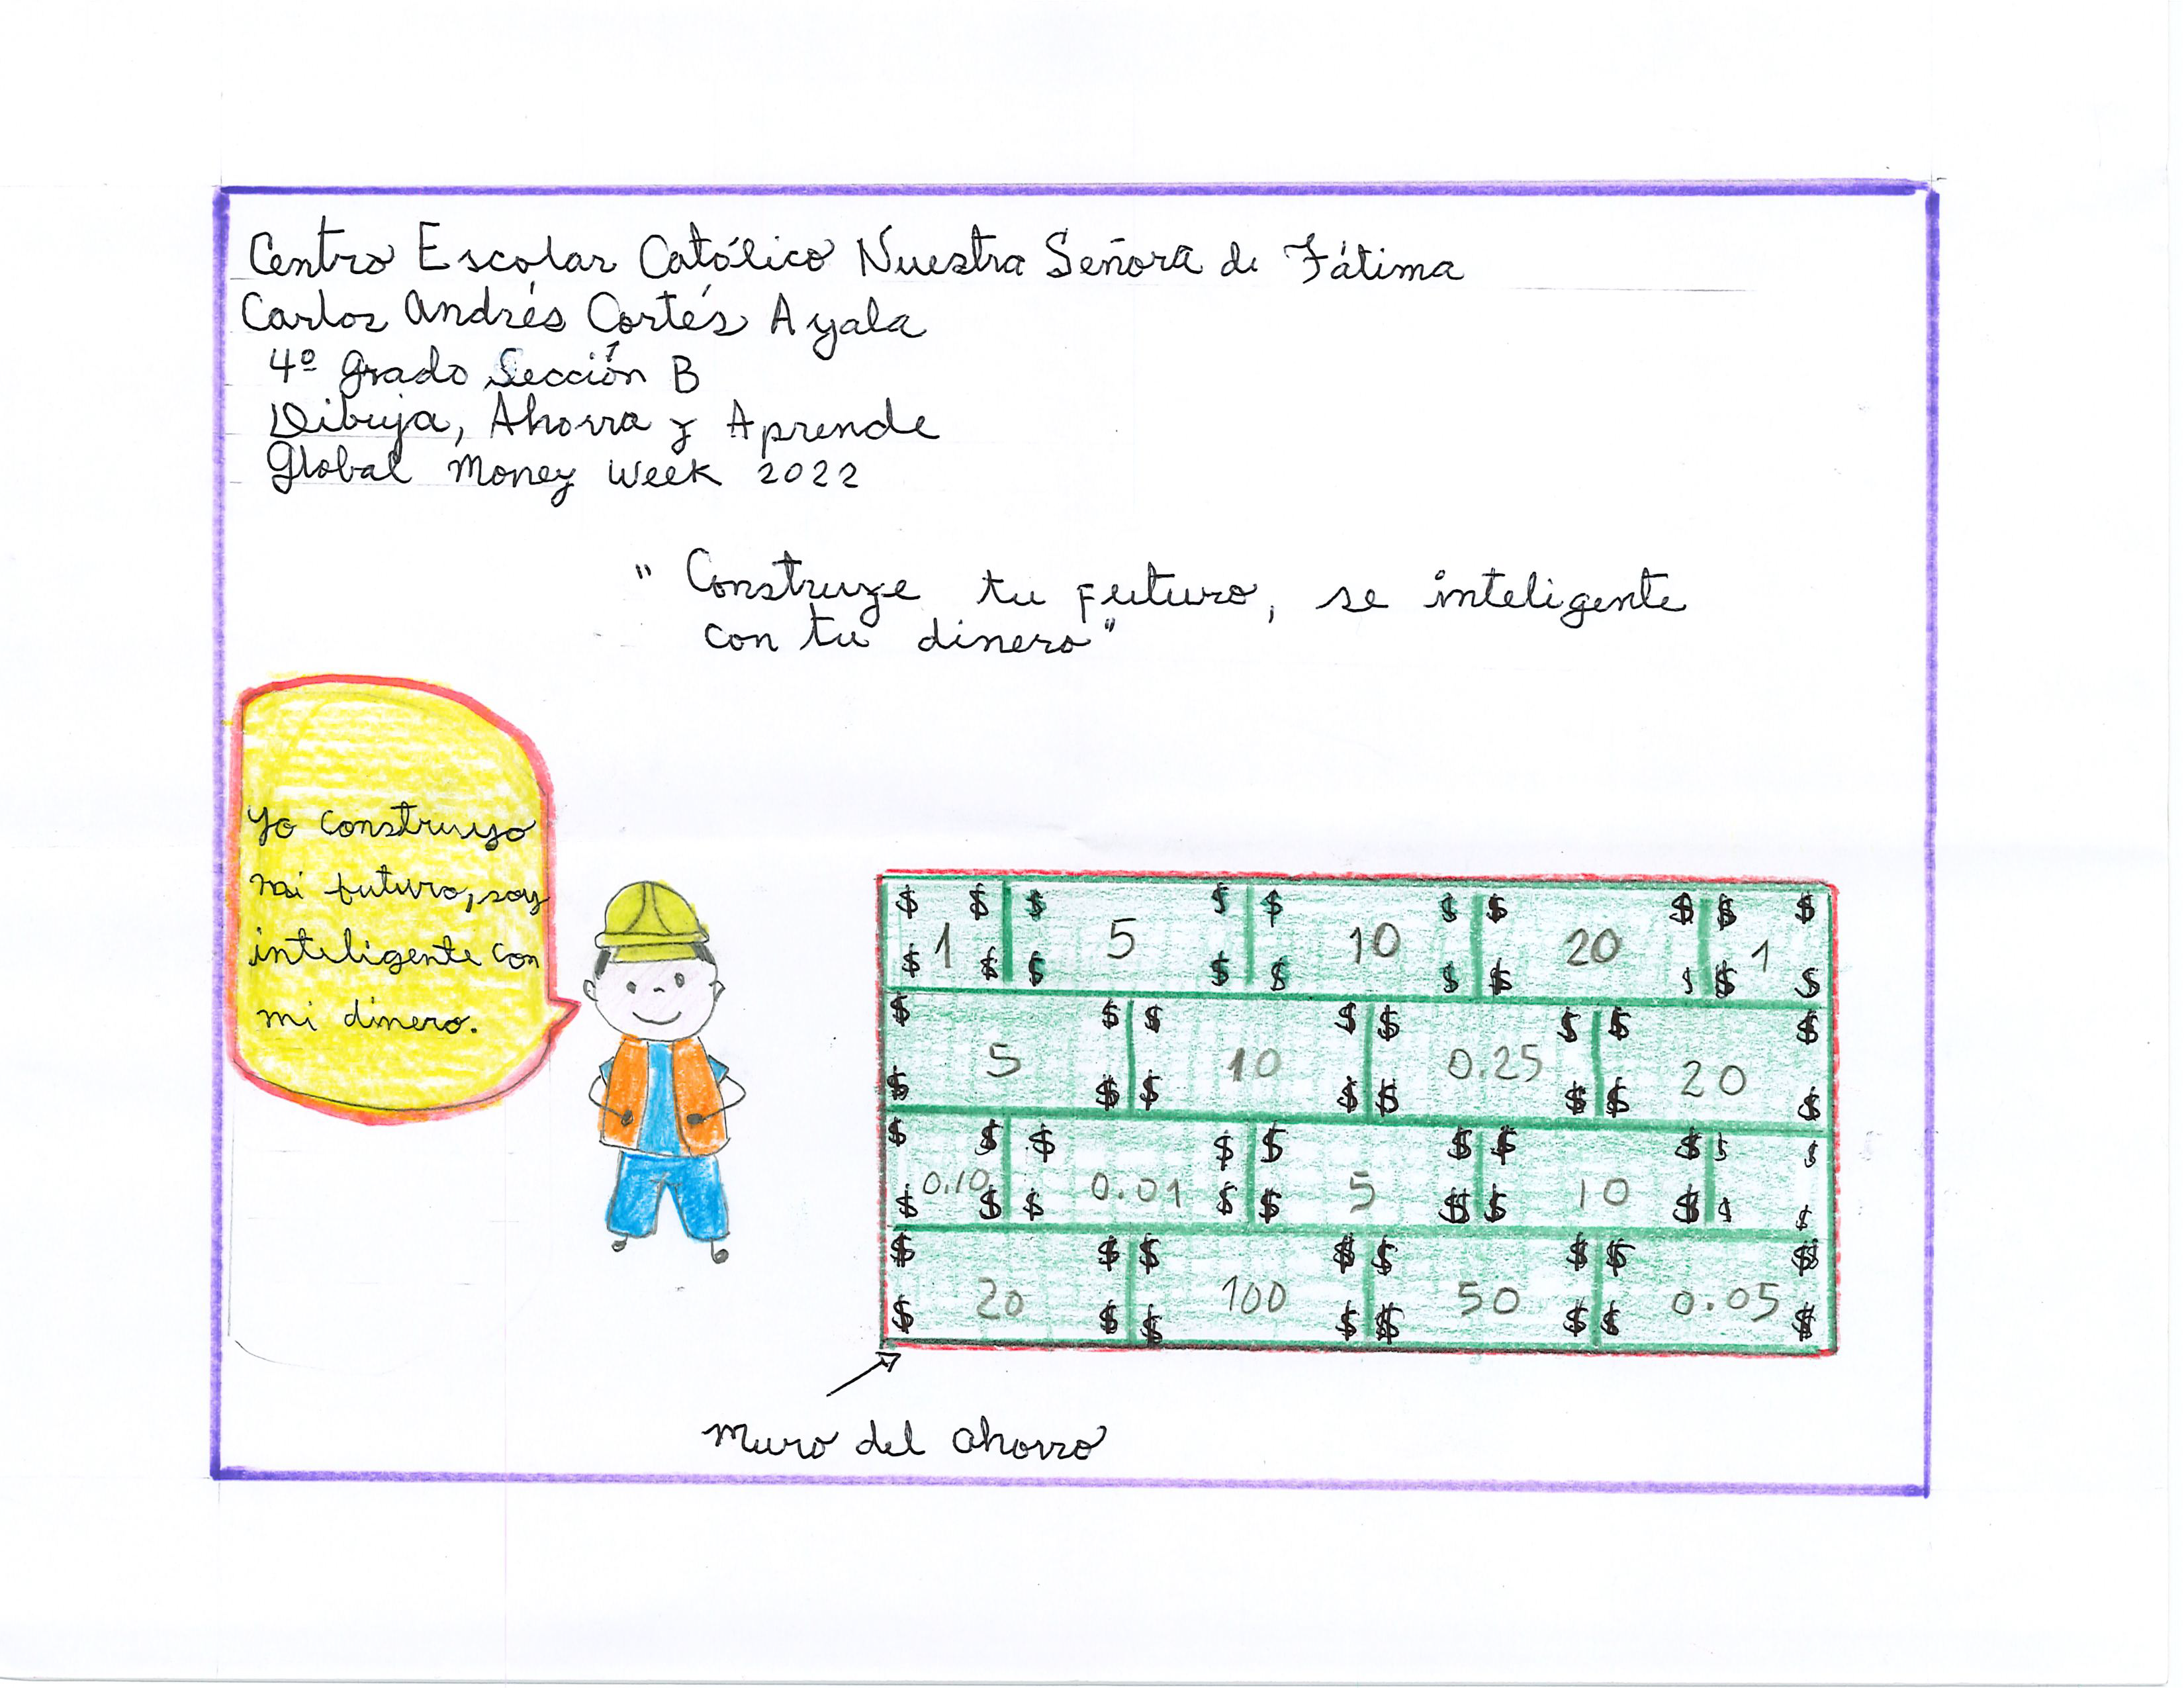 Centro Escolar Católico Nuestra Señora de Fátima
Carlos Andrés Cortés Ayala
4º grado Sección B
Dibuja, Ahorra y Aprende
Global Money Week 2022
" Construye tu futuro, se inteligente
con tu dinero"
Yo construyo
mi futuro, soy
inteligente con
mi dinero.
$ $ $ $ $ $ $ $ $ $
1 5 10 20 1
$ $ $ $ $ $ $ $ $ $
$ $ $ $ $ $ $ $
5 10 0.25 20
$ $ $ $ $ $ $ $
$ $ $ $ $ $ $ $ $ $
0.10 0.01 5 10
$ $ $ $ $ $ $ $ $ $
$ $ $ $ $ $ $ $
20 100 50 0.05
$ $ $ $ $ $ $ $
muro del ahorro